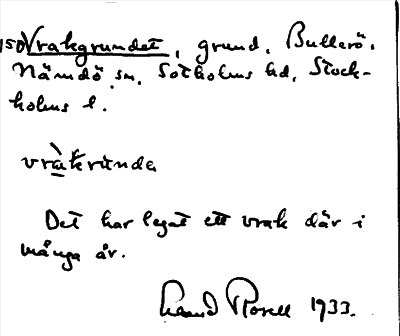 150 Vrakgrundet, grund, Bullerö,
Nämdö sn, Sotholms hd, Stock-
holms l.
vràkrùnda
Det har legat ett vrak där i
många år.
Rosell 1933.